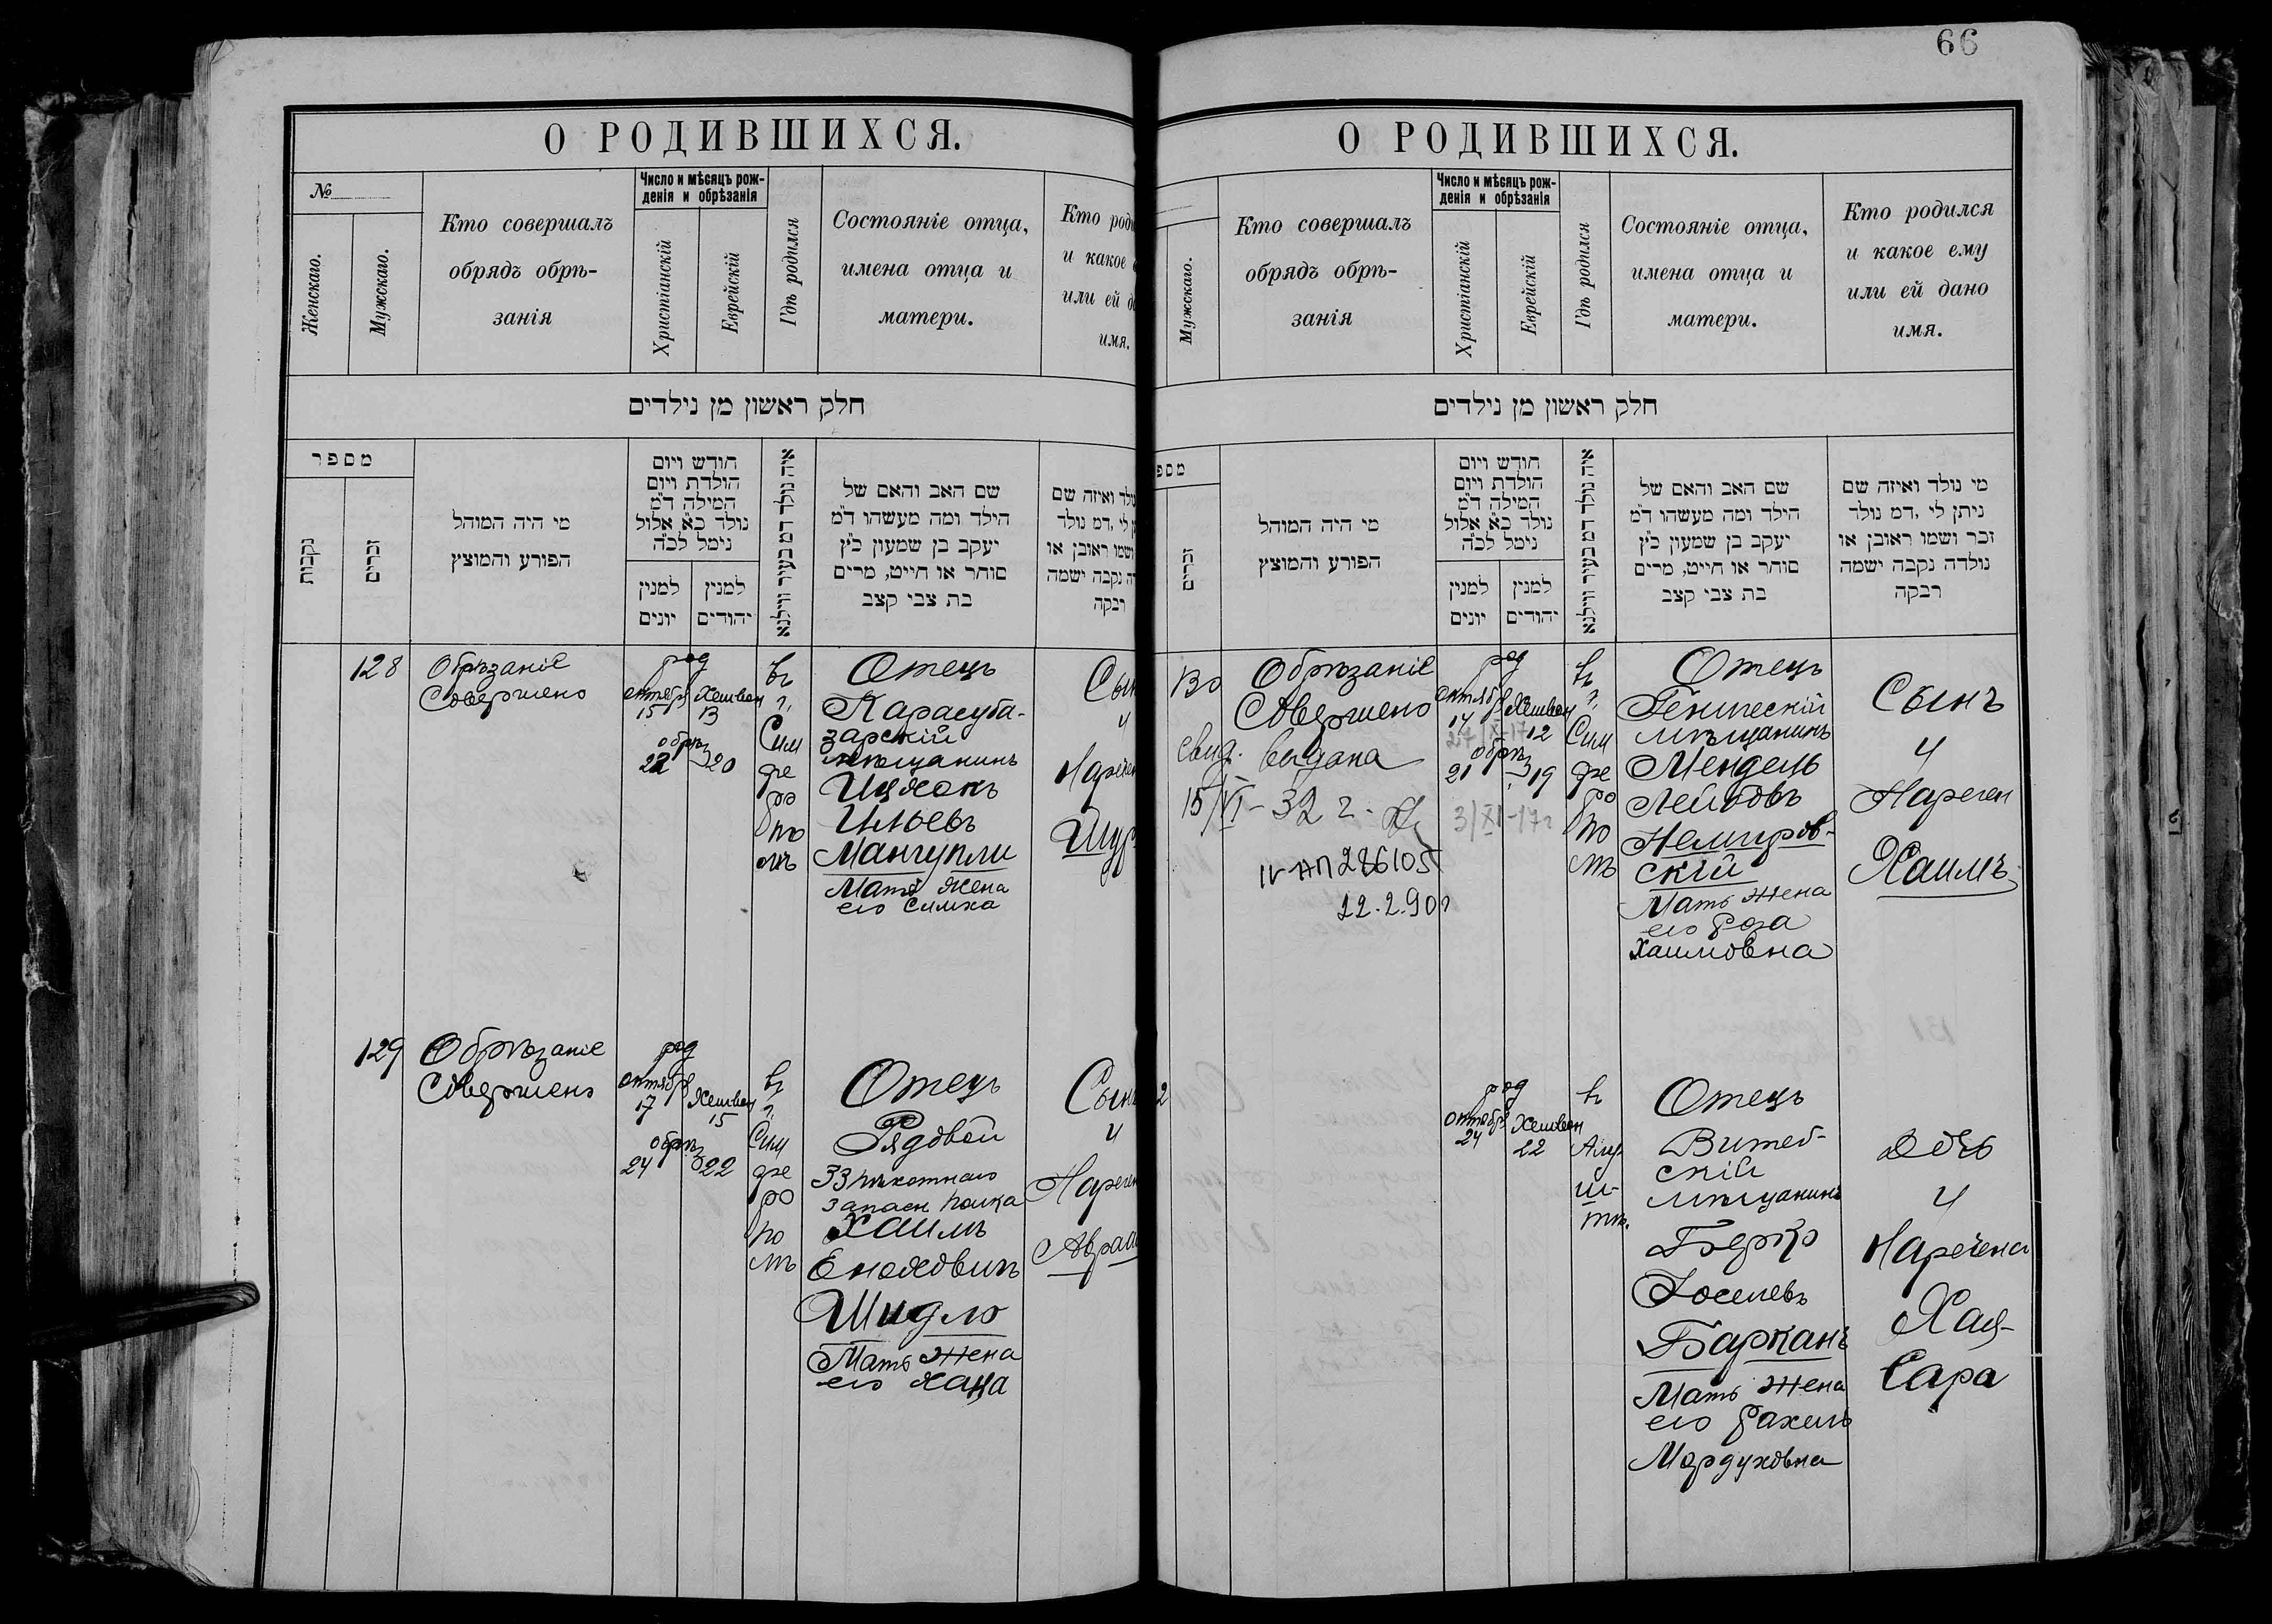 66
О РОДИВШИХСЯ.
№
Женскаго.
Мужскаго.
Кто совершалъ
обрядъ обрѣ-
занія
Число и мѣсяцъ рож-
денія и обрѣзанія
Христіанскій
Еврейскій
Гдѣ родился
Состояніе отца,
имена отца и
матери.
Кто роди
и какое
или ей д
имя.
חלק ראשון מן נילדים
מספר
נקבות
זכרים
מי היה המוהל
הפורע והמוצץ
חודש ויום
הולדת ויום
המילה ד״מ
נולד כ״א אלול
נימל לכ״ה
למנין
יונים
למנין
יהודים
איה נולד דמ בעיר ווילנא
שם האב והאם של
הילד ומה מעשהו ד״מ
יעקב בן שמעון כ״ץ
סוחר או חייט, מרים
בת צבי קצב
ולד ואיזה שם
ן לי ,דמ נולד
ושמו ראובן או
ה נקבה ישמה
רבקה
128
Обрѣзаніе
Совершено
род
октябр Хешван
15 13
обрѣз
22 20
въ
г.
Сим
фе
ро
по
лѣ
Отецъ
Карасуба-
зарскій
мѣщанинъ
Ицхокъ
Ильевъ
Мангупли
Мать жена
его Симха
Сын
и
Наречен
Шур
129
Обрѣзаніе
Совершено
род
октябр
17
Хешван
15
обрѣз
24 22
въ
г.
Сим
фе
ро
по
лѣ
Отецъ
Рядовой
33 пѣхотнаго
запасн полка
Хаимъ
Еноховичъ
Шидло
Мать жена
его Хана
Сынъ
и
Наречен
Авраа
О РОДИВШИХСЯ.
Мужскаго.
Кто совершалъ
обрядъ обрѣ-
занія
Число и мѣсяцъ рож-
денія и обрѣзанія
Христіанскій
Еврейскій
Гдѣ родился
Состояніе отца,
имена отца и
матери.
Кто родился
и какое ему
или ей дано
имя.
חלק ראשון מן נילדים
מספ
זכרים
מי היה המוהל
הפורע והמוצץ
חודש ויום
הולדת ויום
המילה ד״מ
נולד כ״א אלול
נימל לכ״ה
למנין
יונים
למנין
יהודים
איה נולד דמ בעיר ווילנא
שם האב והאם של
הילד ומה מעשהו ד״מ
יעקב בן שמעון כ״ץ
סוחר או חייט, מרים
בת צבי קצב
מי נולד ואיזה שם
ניתן לי ,דמ נולד
זכר ושמו ראובן או
נולדה נקבה ישמה
רבקה
130
Обрѣзаніе
Совершено
свид. выдана
15/VI-32 г.
IV-АП 286105
22.2.90г
род
октябр Хешван
14 12
27/X-17
обрѣз
21 19
3/XI-17г
въ
г.
Сим
фе
ро
по
лѣ
Отецъ
Геническій
мѣщанинъ
Мендель
Лейбовъ
Немиров-
скій
Мать жена
его Роза
Хаимовна
Сынъ
и
Наречен
Хаимъ
2
род
октябр Хешван
24 22
въ
Алу
ш-
тѣ.
Отецъ
Витеб-
скій
мѣщанинъ
Берко
Іоселевъ
Барканъ
Мать жена
его Рахель
Мордуховна
Дочь
и
Наречена
Хая-
Сара